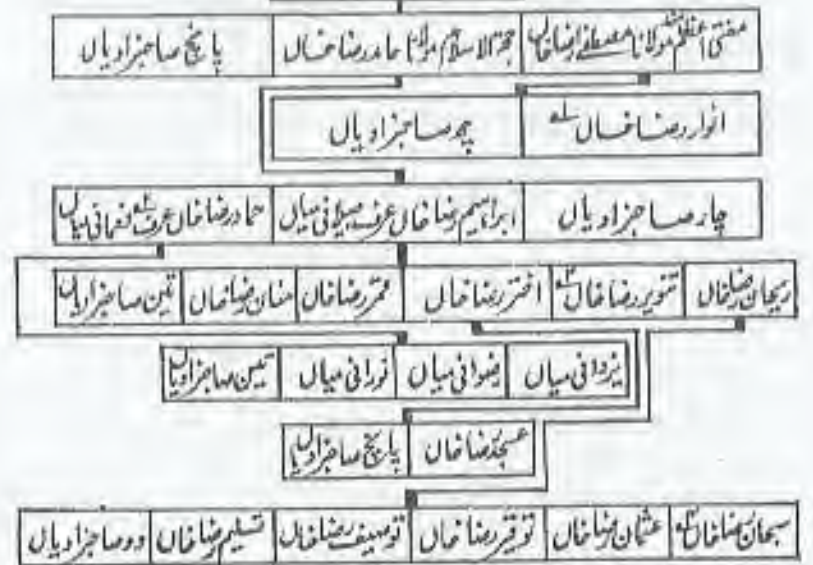 مفتی اعظم مولانا مصطفےٰ رضا خاں حجۃ الاسلام مولانا حامد رضا خاں پانچ صاحبزادیاں
انوار رضا خاں چھ صاحبزادیاں
چار صاحبزادیاں ابراہیم رضا خاں عرف جیلانی میاں حماد رضا خاں عرف نعمانی میاں
ریحان رضا خاں تنویر رضا خاں اختر رضا خاں قمر رضا خاں منان رضا خاں تین صاحبزادیاں
یزدانی میاں رضوانی میاں نورانی میاں تین صاحبزادیاں
عسجد رضا خاں پانچ صاحبزادیاں
سبحان رضا خاں عثمان رضا خاں توقیر رضا خاں توصیف رضا خاں تسلیم رضا خاں دو صاحبزادیاں